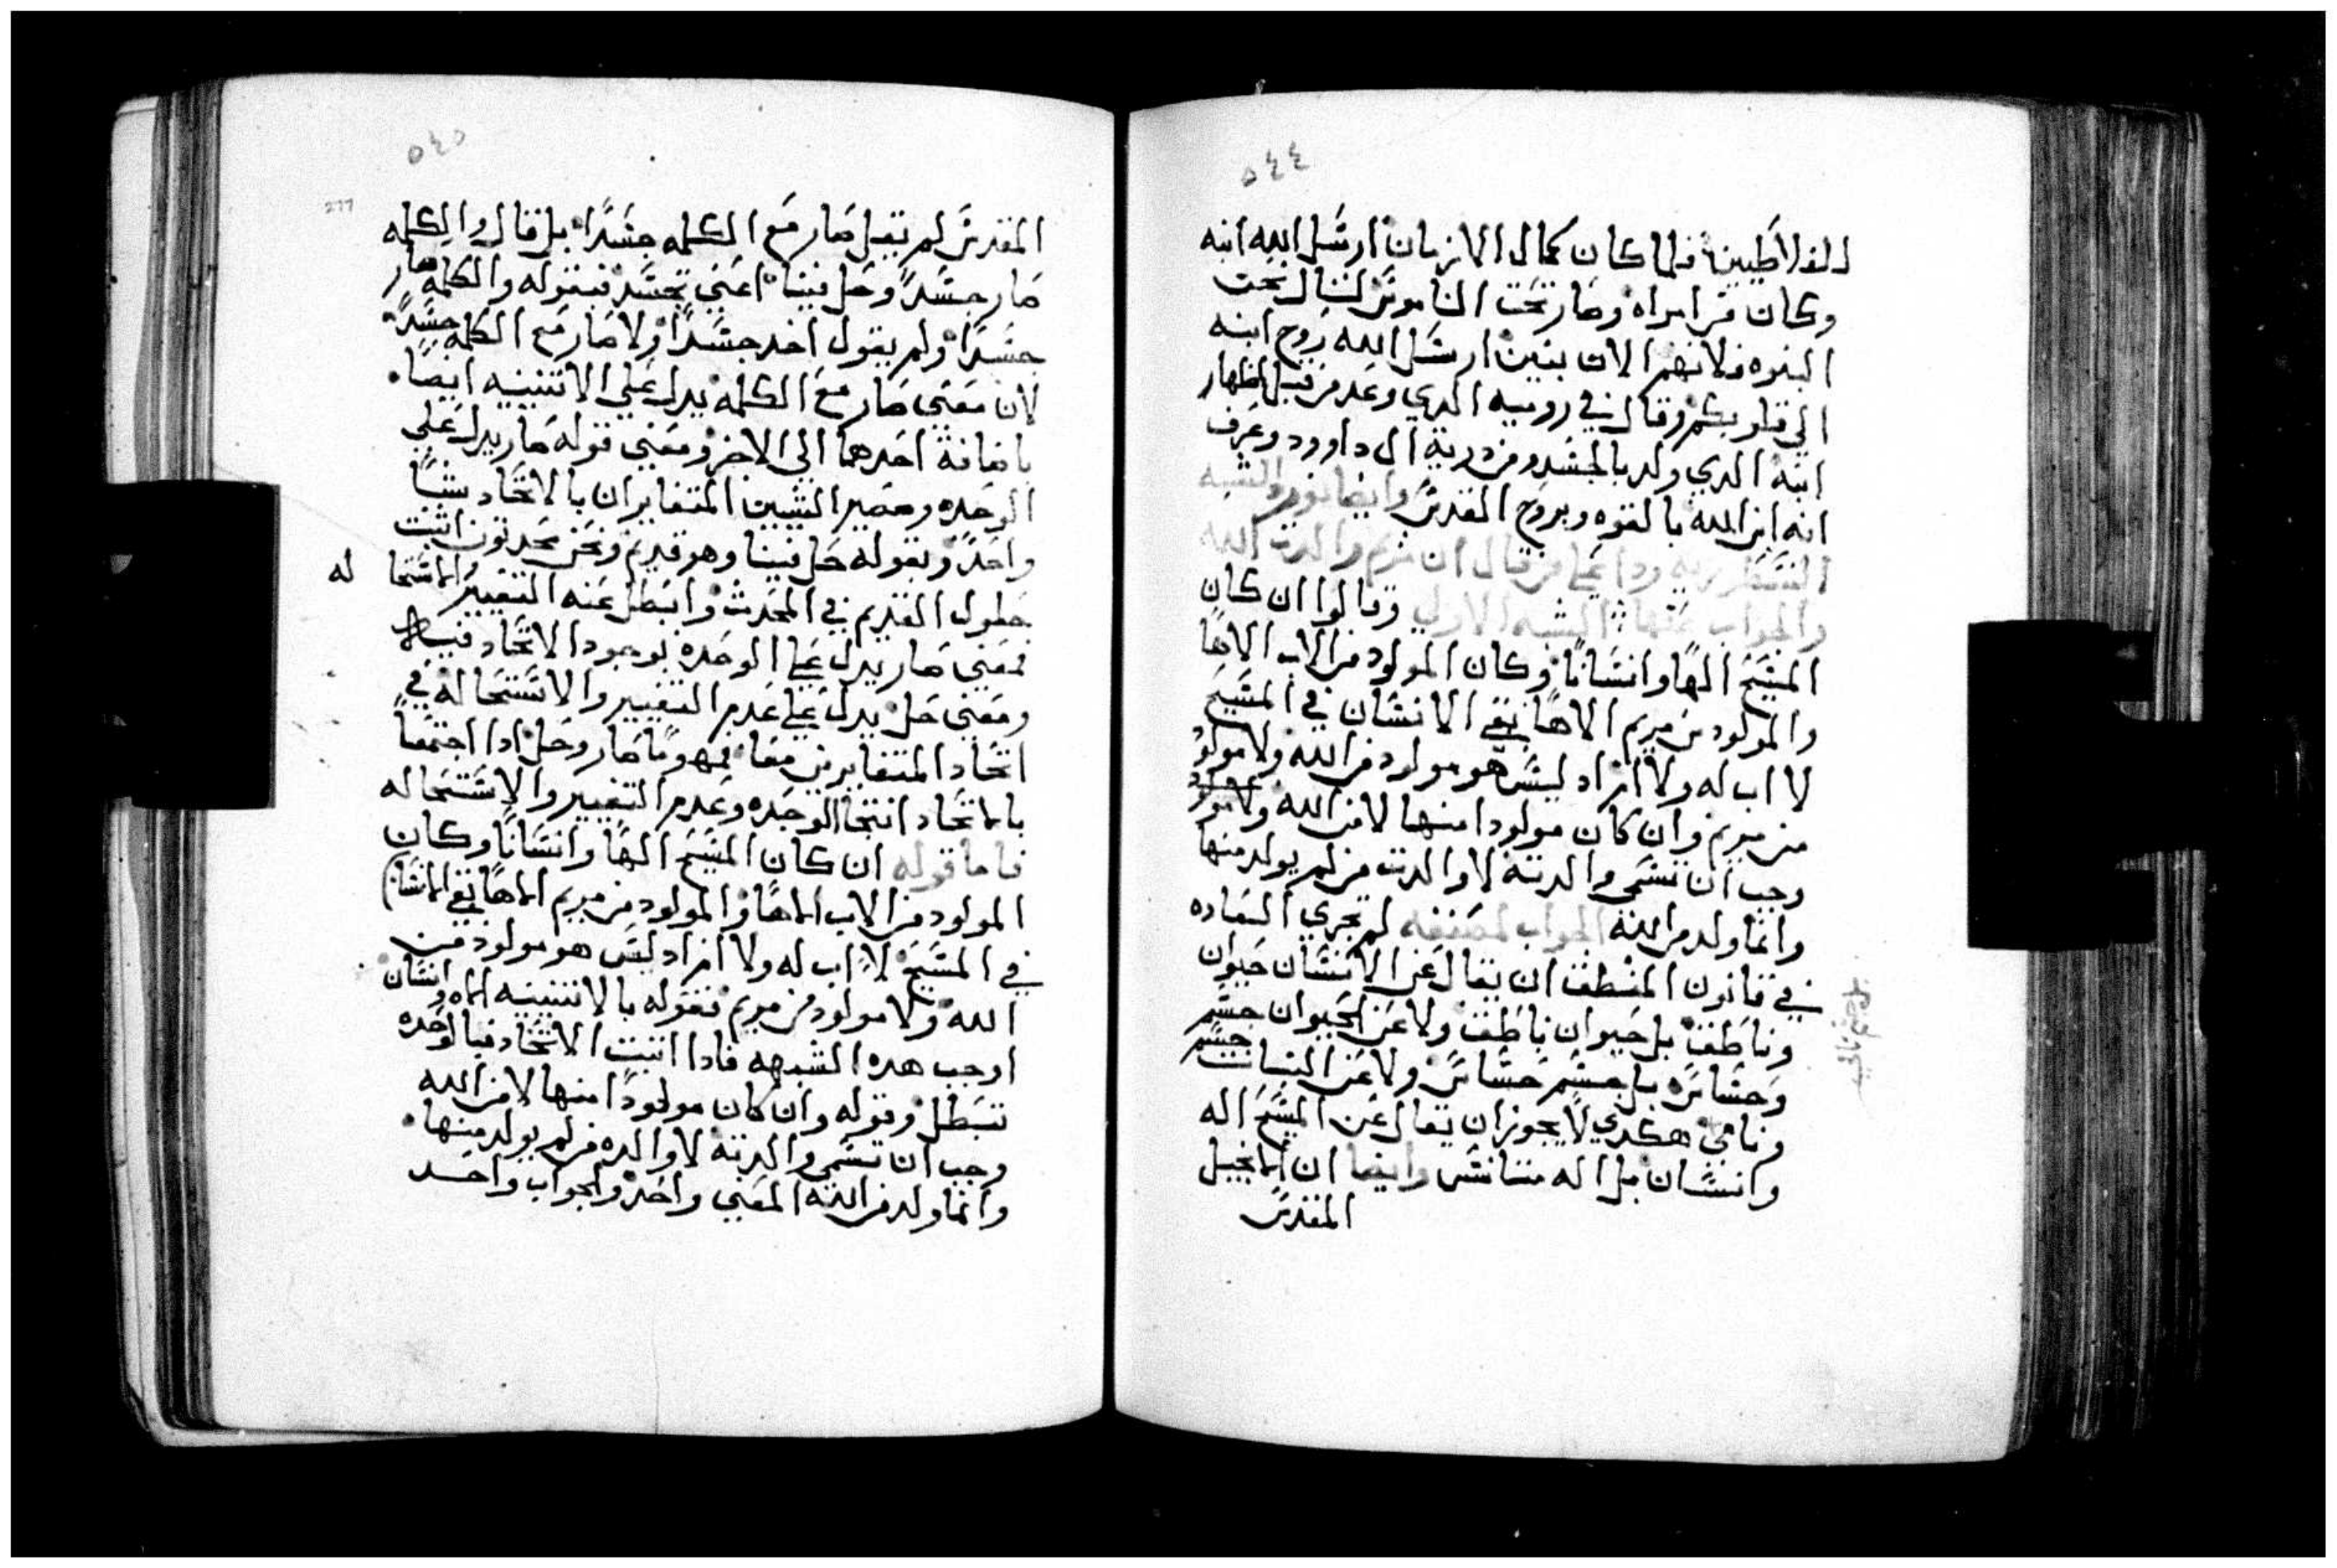 ٥٤٤
الغلاطيين فلما كان كمال الازمان ارسل الله ابنه
وكان من امراه وصار تحت الناموس لننال نحت
البنوه فلانهم الان بنين ارسل الله روح ابنه
الي قلوبكم وقال في روميه الدي وعد من قبل لظهار
ابنه الدي ولد بالجسد من درية ال داوود وعرف
انه ابن الله بالقوه وبروح القدس وايضا نورد الشبه
النسطوريه ودا علي من قال ان مريم والدت الله
والجواب عنها الشبه الاولي وقالوا ان كان
المسيح الهًا وانسانًا وكان المولود من الاب الاهًا
والمولود من مريم الاهًا بقي الانسان في المسيح
لا اب له ولا ام اد ليس هو مولود من الله ولا مولود
من مريم وان كان مولودا منها لا من الله ولا مولود
وجب ان تسمي والدته لا والدت من لم يولد منها
وانما ولد من الله الجواب لمصنفه لم تجري العاده
في قانون المنطق ان يقال عن الانسان حيوان
وناطق بل حيوان ناطق ولا عن الحيوان جسم
وحساس بل جسم حساس ولا عن النبات جسم
ونامي هكدي لا يجوز ان يقال عن المسيح اله
وانسان بل اله متانس وايضا ان الانجيل
المقدس
٥٤٥
277
المقدس لم يقل صار مع الكلمه جسدًا بل قال والكلمه
صار جسدًا وحل فينا اعني تجسد فبقوله والكلمه صار
جسدًا ولم يقول اخد جسدًا ولا صار مع الكلمه جسدًا
لان معني صار مع الكلمه يدل علي الاتنينيه ايضا
باضافة احدهما الي الاخر ومعني قوله صار يدل علي
الوحده ومصير الشيين المتغايران بالاتحاد شيًا
واحدً وبقوله حل فينا وهو قديم ونحن محدتون اتبت
حلول القديم في المحدث وابطل عنه التغيير والاستحا له
فمعني صار يدل علي الوحده بوجود الاتحاد
ومعني حل يدل علي عدم التغيير والاستحاله في
اتحاد المتغايرين معًا فمهومًا صار وحل ادا اجتمعا
بالاتحاد انتجا الوحده وعدم التغيير والاستحاله
فاما قوله ان كان المسيح الهًا وانسانًا وكان
المولود من الاب الاهًا والمولود من مريم الاهًا بقي الانسان
في المسيح لا اب له ولا ام اد ليس هو مولود من
الله ولا مولود من مريم فقوله بالاتنينيه الاه وانسان
اوجب هده الشبهه فادا اتبت الاتحاد فبالوحده
تبطل وقوله وان كان مولودًا منها لا من الله
وجب ان تسمي والدته لا والده من لم يولد منها
وانما ولد من الله المعني واحد والجواب واحد